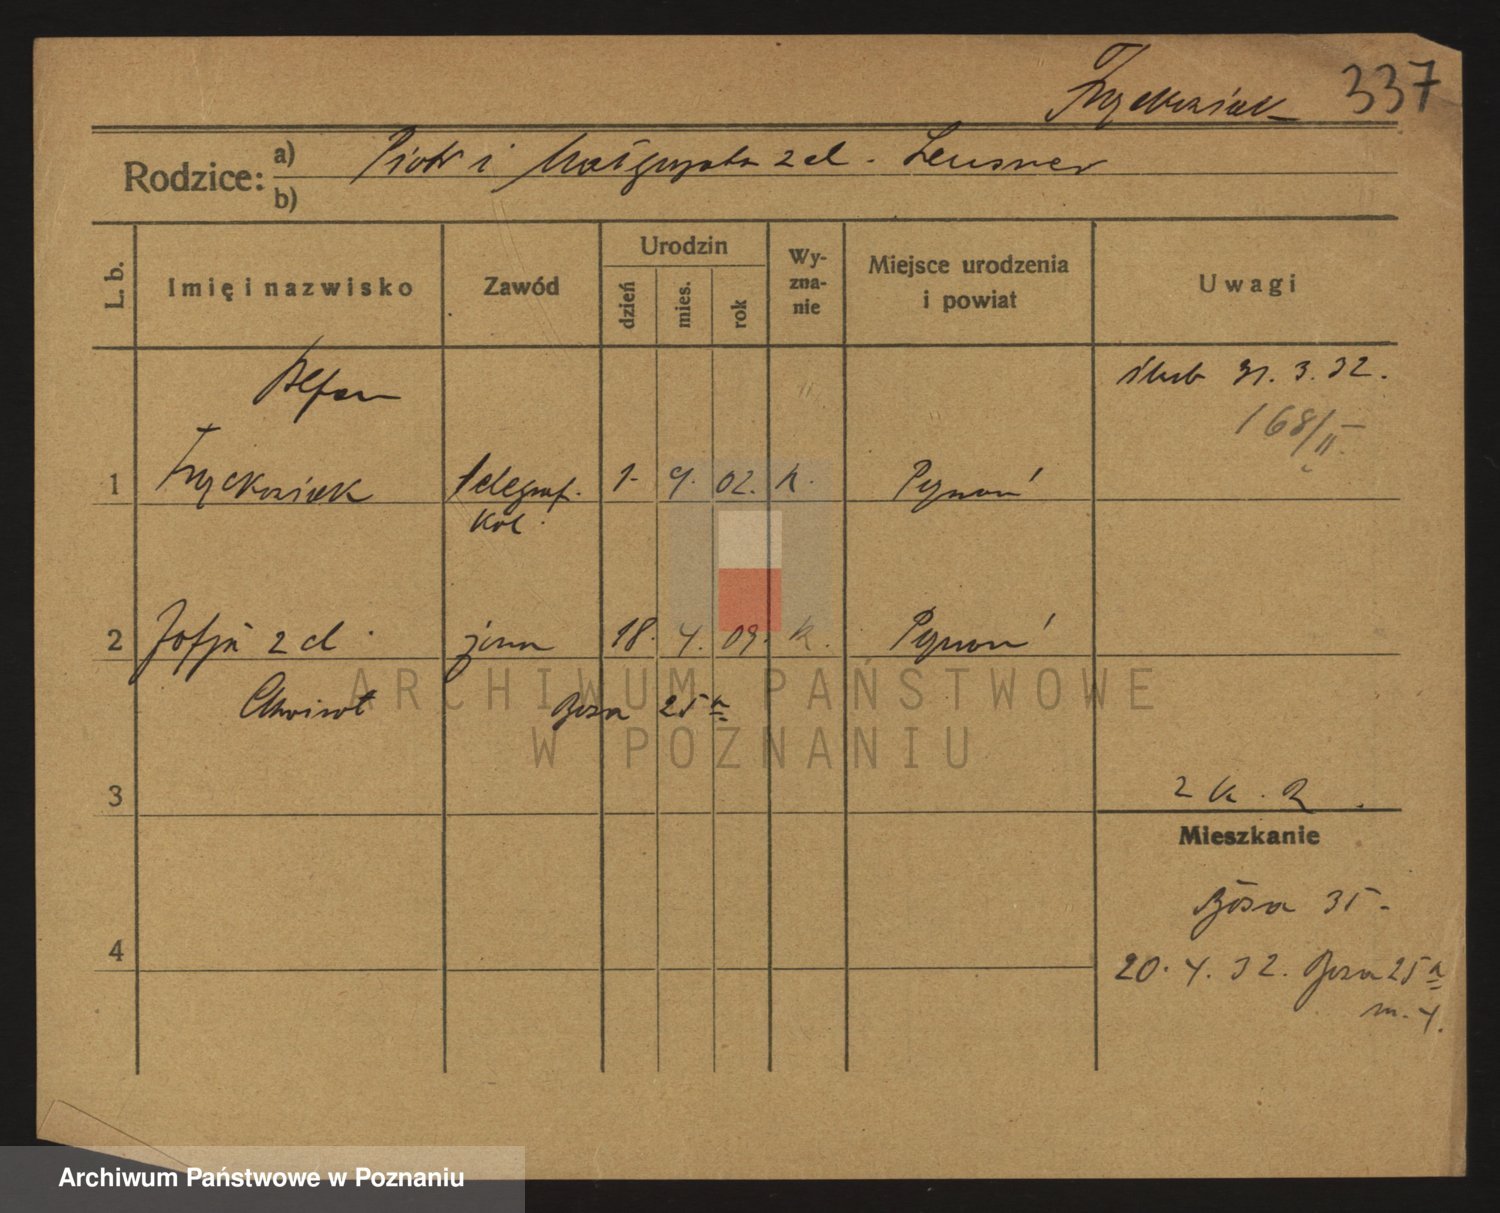 337
Rodzice: a) Piotr i Małgorzata z d. Leusner
b)
L. b.
Imię i nazwisko
Zawód
Urodzin
dzień
mies.
rok
Wy-
zna-
nie
Miejsce urodzenia
i powiat
Uwagi
Stefan
ślub 31. 3. 32.
168/II.
1 telegraf. 1. 9. 02. k. Poznań
kol.
2 Zofja z d. żona 18. 4. 09. k. Poznań
ARCHIWUM PAŃSTWOWE
W POZNANIU
25 a
3
2 k. 2
Mieszkanie
35
4
20. 4. 32. 25 a
m. 4.
Archiwum Państwowe w Poznaniu